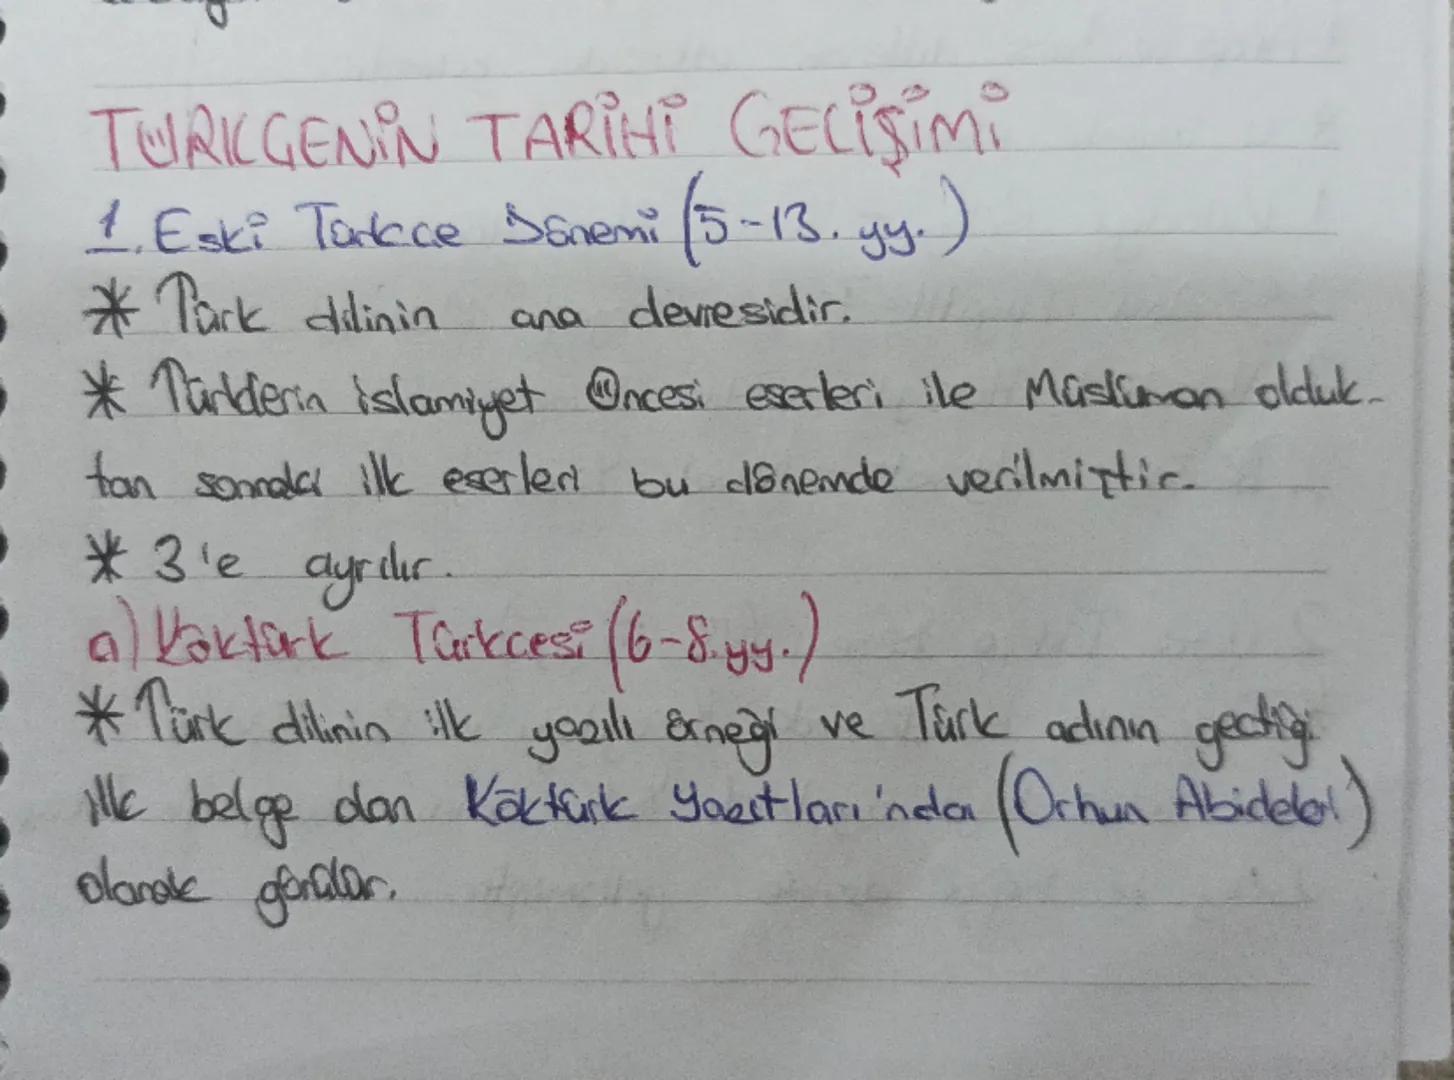 TÜRKÇENİN TARİHİ GELİŞİMİ
1. Eski Türkçe Dönemi (5-13. yy.)
* Türk dilinin ana devresidir.
* Türklerin islamiyet Öncesi eserleri ile Müslüman olduk-
tan sonraki ilk eserleri bu dönemde verilmiştir.
* 3'e ayrılır.
a) Köktürk Türkçesi (6-8. yy.)
* Türk dilinin ilk yazılı örneği ve Türk adının geçtiği
ilk belge olan Köktürk Yazıtları'nda (Orhun Abideleri)
olarak görülür.